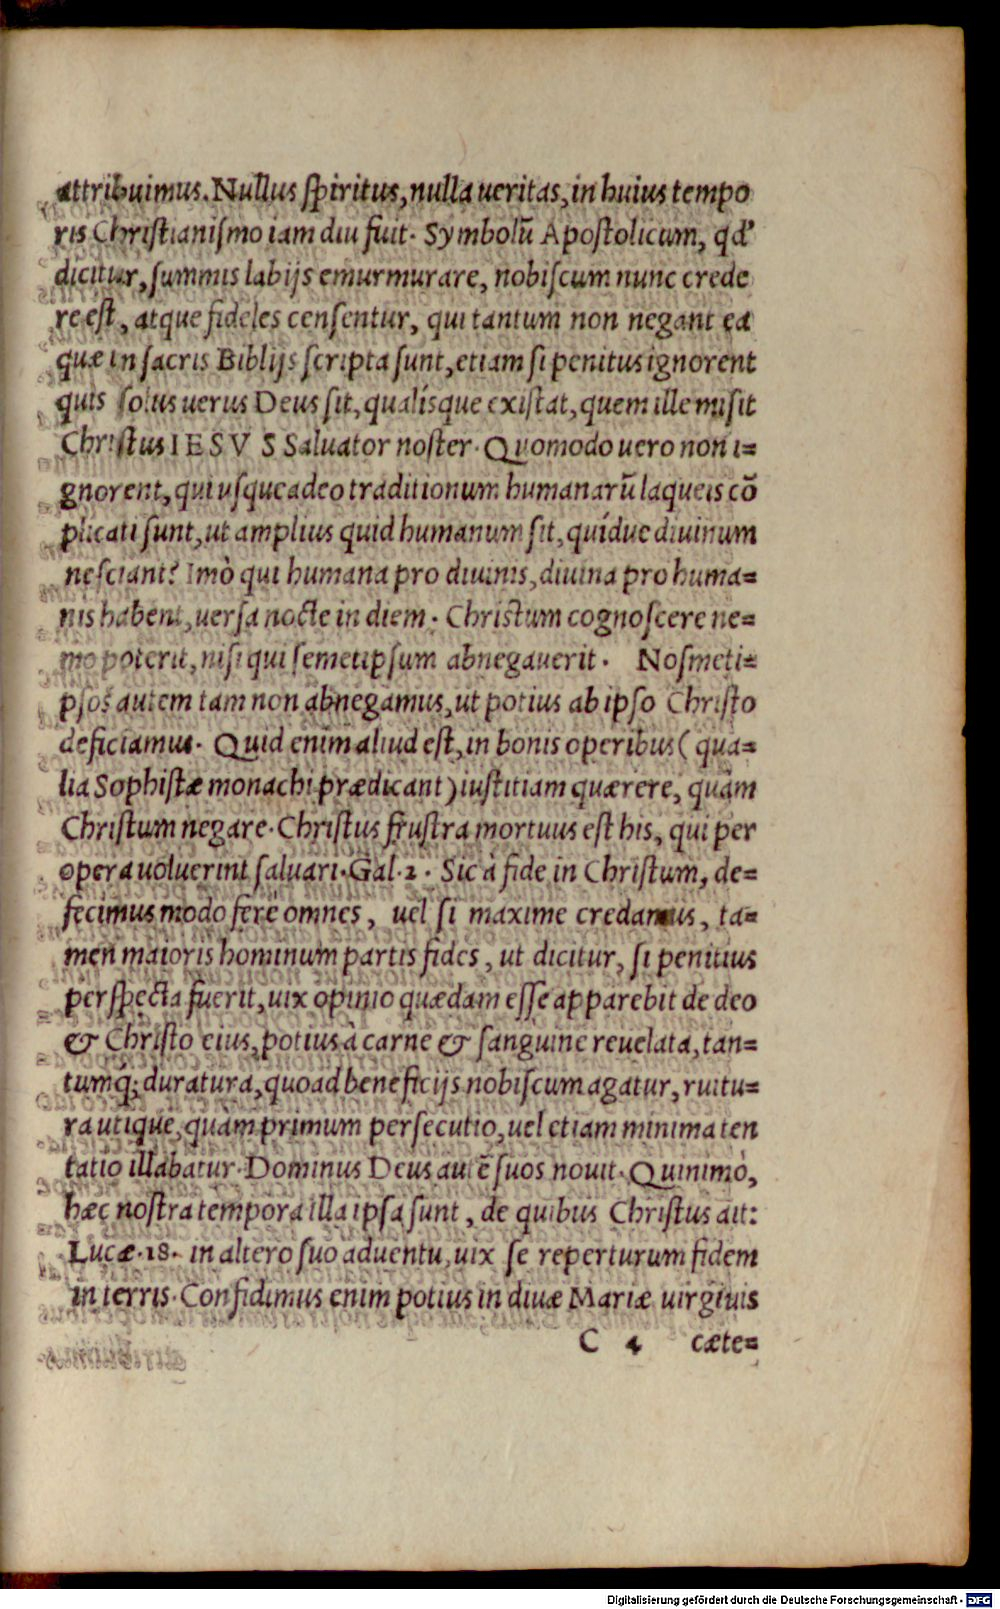 attribuimus. Nullus ſpiritus, nulla ueritas, in huius tempo
ris Chriſtianiſmo iam diu fuit. Symbolũ Apoſtolicum, qd'
dicitur, ſummis labijs emurmurare, nobiſcum nunc crede
re eſt, atque fideles cenſentur, qui tantum non negant ea
quæ in ſacris Biblijs ſcripta ſunt, etiam ſi penitus ignorent
quis ſolus uerus Deus ſit, qualíſque exiſtat, quem ille miſit
Chriſtus IESVS Saluator noſter. Quomodo uero non i=
gnorent, qui uſque adeo traditionum humanarũ laqueis cõ
plicati ſunt, ut amplius quid humanum ſit, quídue diuinum
neſciant? Imò qui humana pro diuinis, diuina pro huma=
nis habent, uerſa nocte in diem. Chriſtum cognoſcere ne=
mo poterit, niſi qui ſemetipſum abnegauerit. Noſmeti=
pſos autem tam non abnegamus, ut potius ab ipſo Chriſto
deficiamus. Quid enim aliud eſt, in bonis operibus (qua=
lia Sophiſtæ monachi prædicant) iuſtitiam quærere, quàm
Chriſtum negare. Chriſtus fruſtra mortuus eſt his, qui per
opera uoluerint ſaluari. Gal. 2. Sic à fide in Chriſtum, de=
fecimus modo ferè omnes, uel ſi maxime credamus, ta=
men maioris hominum partis fides, ut dicitur, ſi penitius
perſpecta fuerit, uix opinio quædam eſſe apparebit de deo
& Chriſto eius, potius à carne & ſanguine reuelata, tan=
tumq́; duratura, quoad beneficijs nobiſcum agatur, ruitu=
ra utique, quàm primum perſecutio, uel etiam minima ten
tatio illabatur. Dominus Deus autẽ ſuos nouit. Quinimò,
hæc noſtra tempora illa ipſa ſunt, de quibus Chriſtus ait:
Lucæ. 18. in altero ſuo aduentu, uix ſe reperturum fidem
in terris. Confidimus enim potius in diuæ Mariæ uirginis
C 4 cæte=
Digitalisierung gefördert durch die Deutsche Forschungsgemeinschaft - DFG